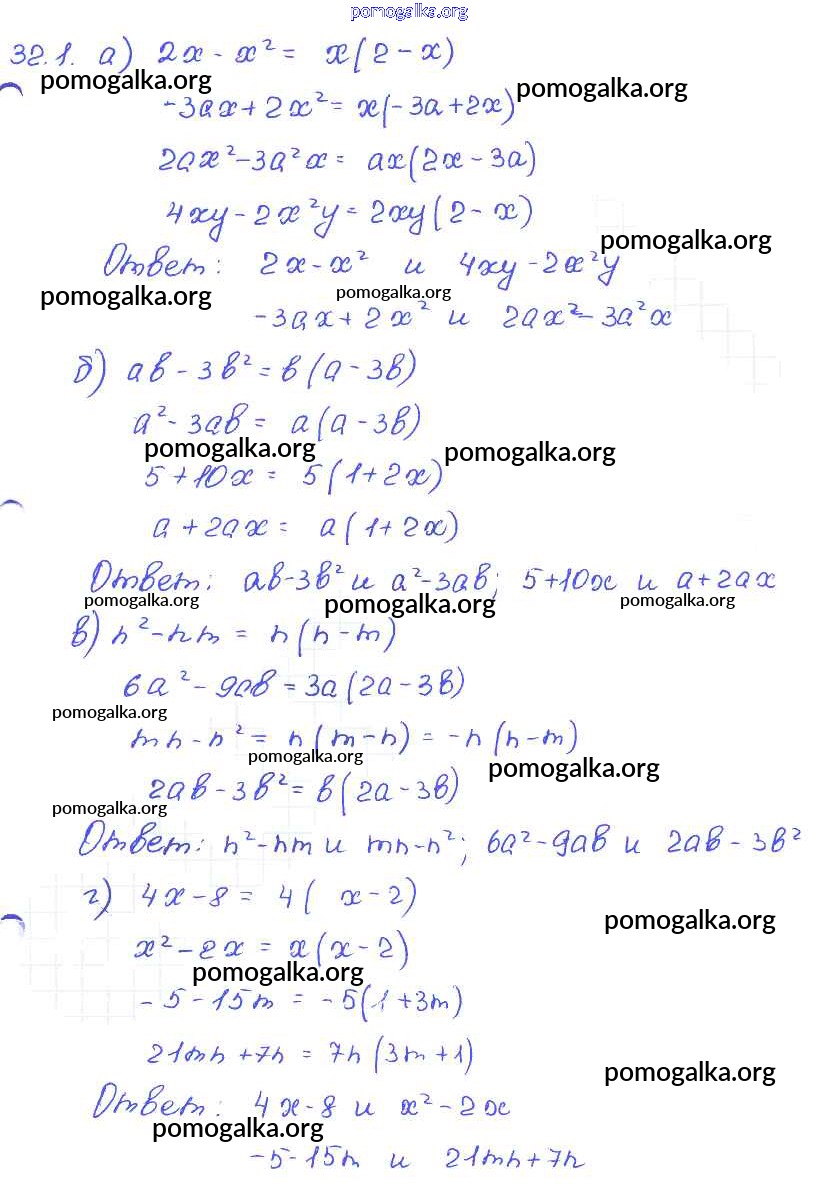 pomogalka.org
32.1. а) 2x - x² = x(2 - x)
pomogalka.org pomogalka.org
-3ax + 2x² = x(-3a + 2x)
2ax² - 3a²x = ax(2x - 3a)
4xy - 2x²y = 2xy(2 - x)
pomogalka.org
Ответ: 2x - x² и 4xy - 2x²y
pomogalka.org pomogalka.org
-3ax + 2x² и 2ax² - 3a²x
б) ав - 3в² = в(а - 3в)
а² - 3ав = а(а - 3в)
pomogalka.org pomogalka.org
5 + 10x = 5(1 + 2x)
a + 2ax = a(1 + 2x)
Ответ: ав - 3в² и а² - 3ав; 5 + 10x и a + 2ax
pomogalka.org pomogalka.org pomogalka.org
в) n² - nm = n(n - m)
6а² - 9ав = 3а(2а - 3в)
pomogalka.org
mn - n² = n(m - n) = -n(n - m)
pomogalka.org pomogalka.org
2ав - 3в² = в(2а - 3в)
pomogalka.org
Ответ: n² - nm и mn - n²; 6а² - 9ав и 2ав - 3в²
г) 4x - 8 = 4( x - 2)
pomogalka.org
x² - 2x = x(x - 2)
pomogalka.org
-5 - 15m = -5(1 + 3m)
21mn + 7n = 7n(3m + 1)
pomogalka.org
Ответ: 4x - 8 и x² - 2x
pomogalka.org
-5 - 15m и 21mn + 7n